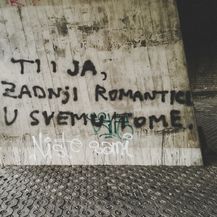 TI I JA,
ZADNJI ROMANTICI
U SVEMU TOME.
Niste sami